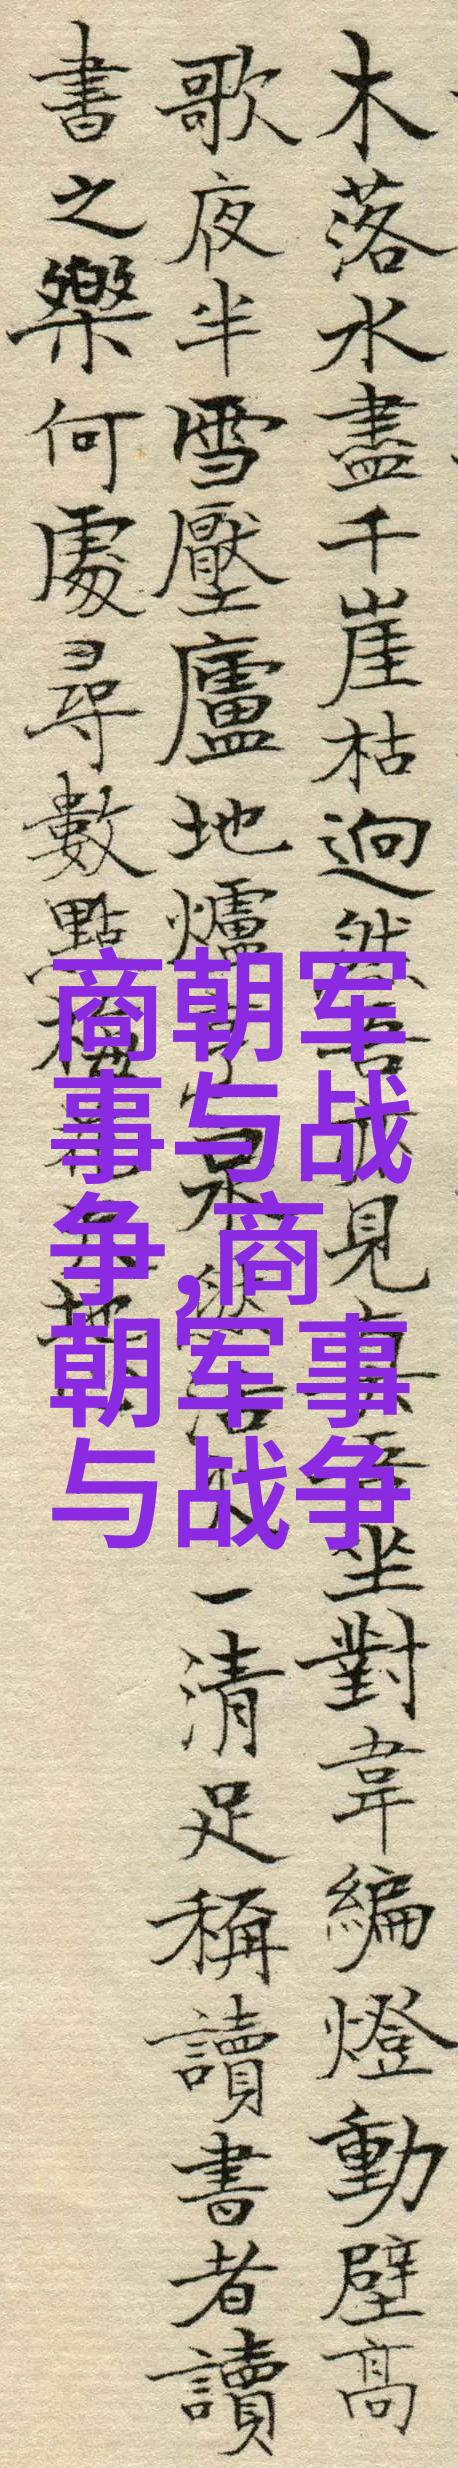 木落水盡千崖枯迥然吾亦見真吾坐對韋編燈動壁高
歌夜半雪壓廬地爐一清足稱讀書者讀
書之樂何處尋數點梅地
商朝军
事与战
争,商
朝军事
与战争